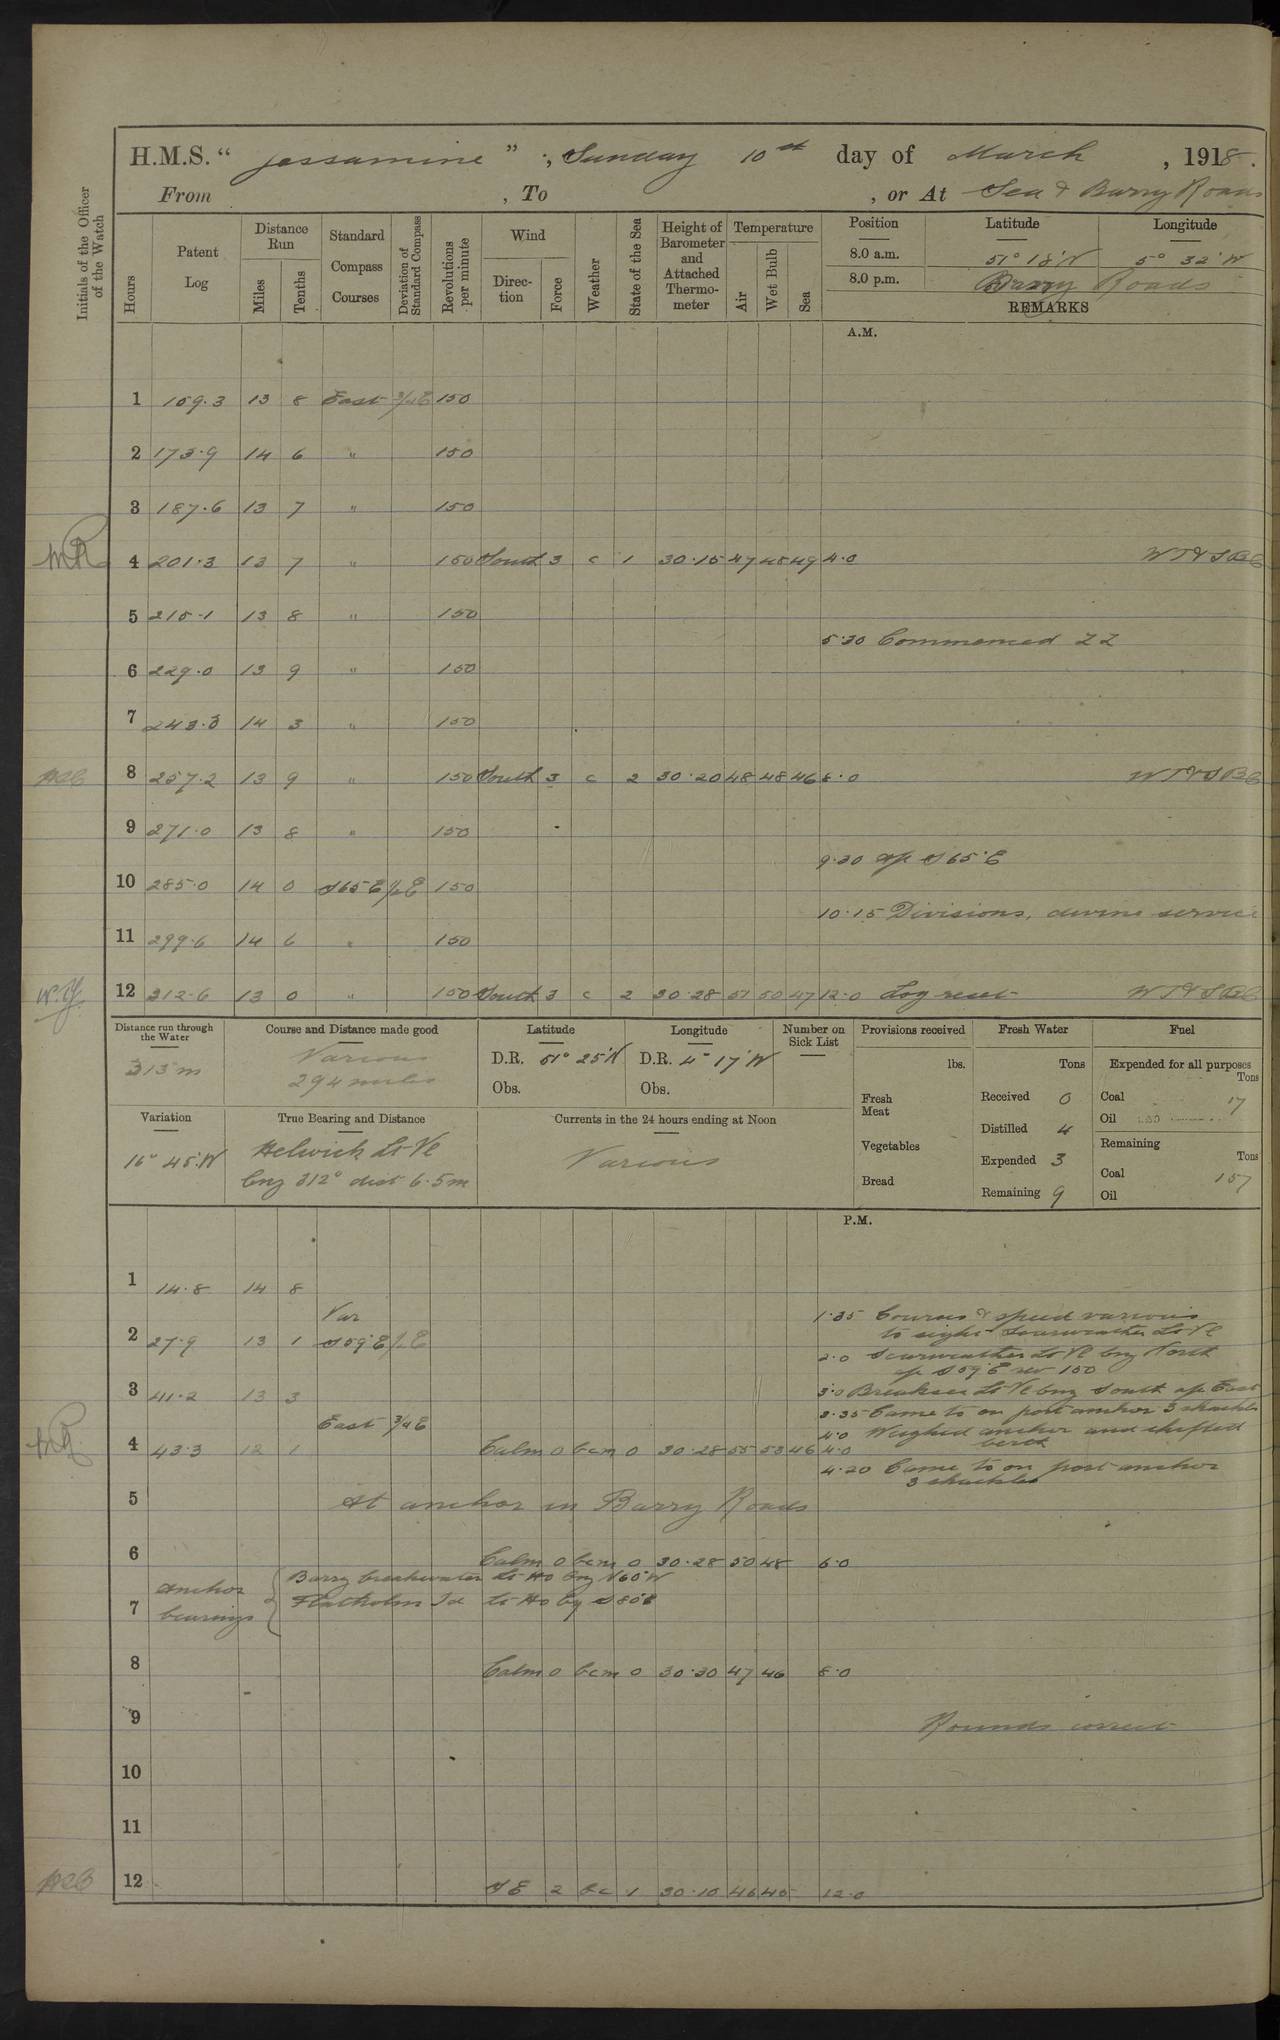 H.M.S. “Jessamine”, Sunday 10th day of March, 1918.
From , To , or At Sea & Barry Roads
Initials of the Officer of the Watch
Hours
Patent Log
Distance Run
Miles
Tenths
Standard Compass Courses
Deviation of Standard Compass
Revolutions per minute
Wind
Direction
Force
Weather
State of the Sea
Height of Barometer and Attached Thermometer
Temperature
Air
Wet Bulb
Sea
Position Latitude Longitude
8.0 a.m. 51° 18' N 5° 32' W
8.0 p.m. Barry Roads
REMARKS
A.M.
1 159.3 13 8 East 3/4E 150
2 173.9 14 6 " 150
3 187.6 13 7 " 150
4 201.3 13 7 " 150 South 3 c 1 30.15 47 48 49 4.0 WT&SBC
5 215.1 13 8 " 150
5.30 Commenced ZZ
6 229.0 13 9 " 150
7 243.3 14 3 " 150
8 257.2 13 9 " 150 South 3 c 2 30.20 48 48 46 8.0 WT&SBC
9 271.0 13 8 " 150
9.30 a/c S65°E
10 285.0 14 0 S65E 1/2E 150
10.15 Divisions, devine service
11 299.6 14 6 " 150
12 312.6 13 0 " 150 South 3 c 2 30.28 51 50 47 12.0 Log reset WT&SBC
Distance run through the Water
313 m
Course and Distance made good
Various
294 miles
Latitude
D.R. 51° 25' N
Obs.
Longitude
D.R. 4° 17' W
Obs.
Number on Sick List
Provisions received
lbs.
Fresh Meat
Vegetables
Bread
Fresh Water
Tons
Received 0
Distilled 4
Expended 3
Remaining 9
Fuel
Expended for all purposes
Tons
Coal 17
Oil
Remaining
Tons
Coal 157
Oil
Variation
16° 45' W
True Bearing and Distance
Helwick Lt Vl
brg 312° dist 6.5m
Currents in the 24 hours ending at Noon
Various
P.M.
1 14.8 14 8
1.35 Courses & speed various
to sight Scarweather Lt Vl
Var
2 27.9 13 1 S59°E 1/2E
2.0 Scarweather Lt Vl brg North
a/c S59°E rev 150
3 41.2 13 3
3.0 Breaksea Lt Vl brg South a/c East
3.35 Came to on port anchor 3 shackles
East 3/4E
4.0 Weighed anchor and shifted
berth
4 43.3 12 1 Calm 0 bcm 0 30.28 55 53 46 4.0
4.20 Came to on port anchor
3 shackles
5 At anchor in Barry Roads
6 Calm 0 bcm 0 30.28 50 48 6.0
Anchor bearings
Barry breakwater Lt Ho brg N60°W
7 Flatholm Id Lt Ho bg S80°E
8 Calm 0 bcm 0 30.30 47 46 8.0
9 Rounds correct
10
11
12 SE 2 bc 1 30.10 46 45 12.0